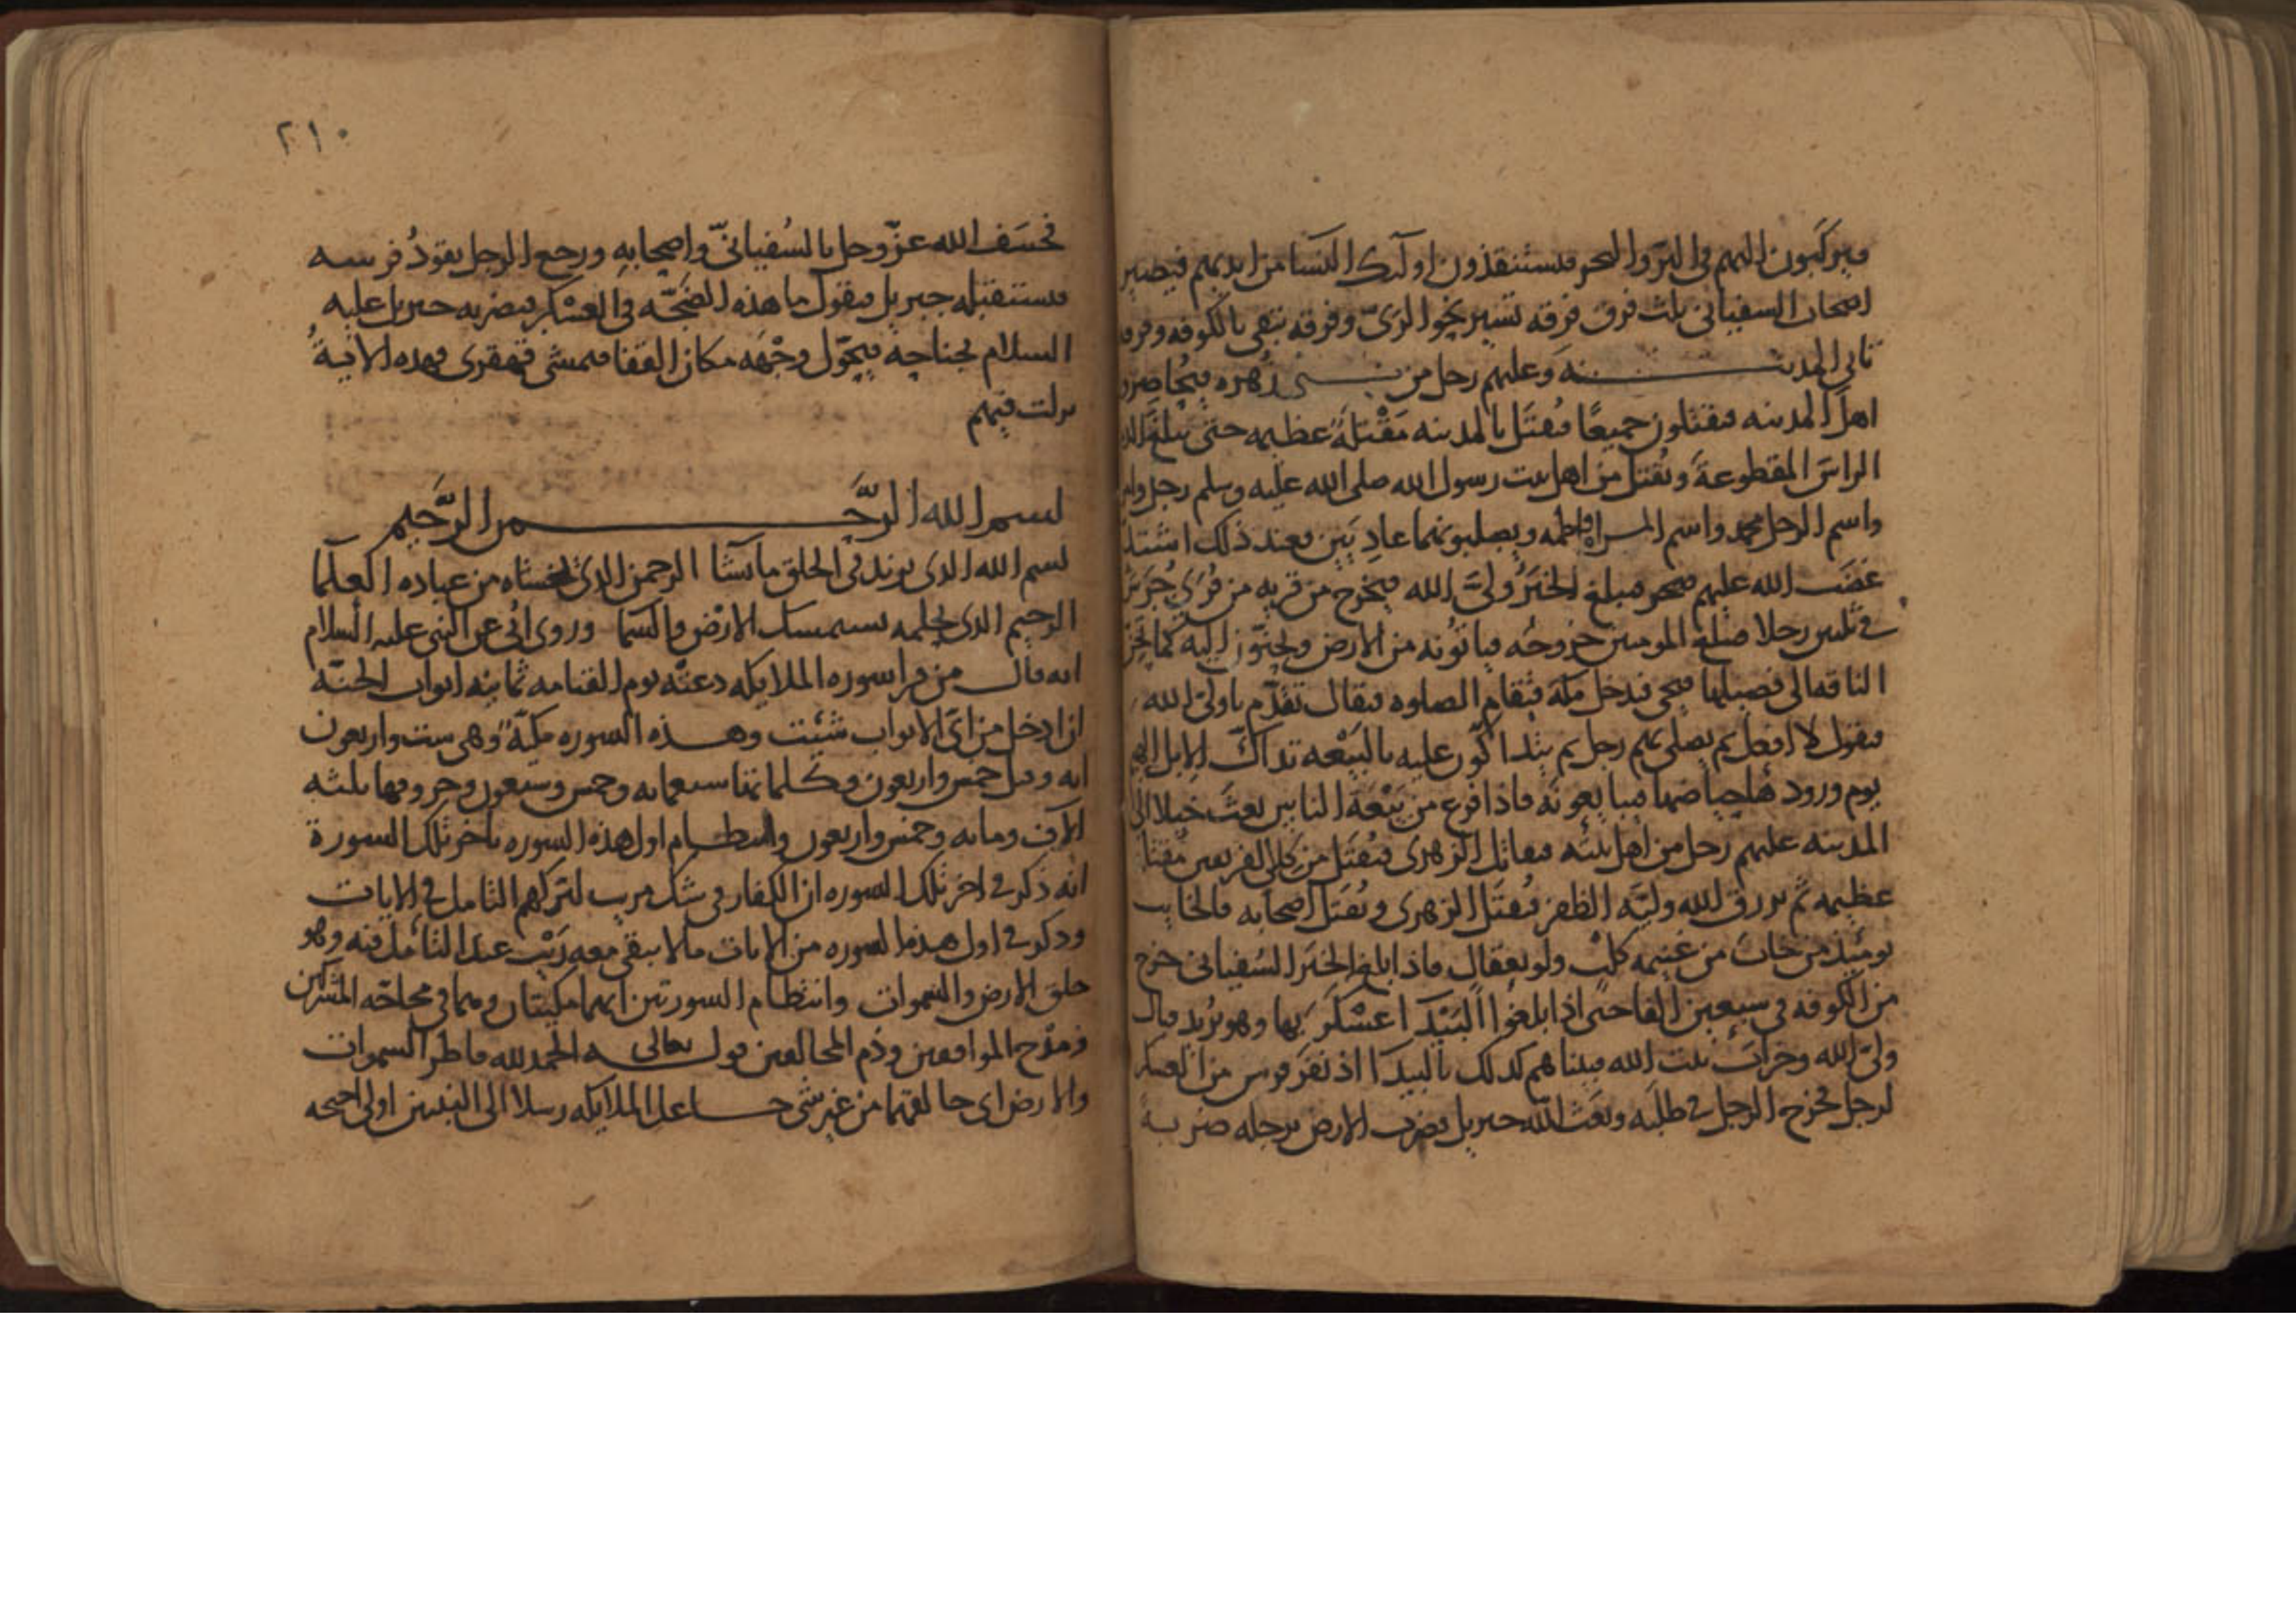 فيركبون اليهم في البر والبحر فيستنقذون اولىك النسا من ايديهم فيصير
اصحاب السفياني ثلث فرق فرقه تسير نحو الري وفرقه تبقى بالكوفه وفرقه
تاتي المدينه وعليهم رجل من بني زهره فيحاصرون
اهل المدينه فيقتلون جميعًا فيُقتَل بالمدينه مَقْتلةً عظيمه حتى يبلغ الدم
الراسَ المقطوعةَ ويُقتل من اهل بيت رسول الله صلى الله عليه وسلم رجل وامراة
واسم الرجل محمد واسم المراة فاطمه ويصلبونهما عاريَين فعند ذلك اشتد
غضَب الله عليهم فيبلغ الخبَرُ وليَّ الله فيخرج من قريه من قُرَى جُرَش
في ثلثين رجلا فيبلغ المومنين خروجُه فياتُونه من الارض ويحنّون اليه كما تحن
الناقه الى فصيلها فيجي فيدخل مكة فيقام الصلوه فيقال تقدّم يا ولي الله
فيقول لا افعل ثم يصلي بهم رجل ثم يتداكّون عليه بالبَيْعه تداكّ الابل الهيم
يوم ورود حياضها فيبايعونه فاذا فرغ من بَيْعَة الناس بعثَ خيلا الى
المدينه عليهم رجل من اهل بيته فيقاتل الزهرى فيُقتَل من كلي الفريقين مقتلة
عظيمه ثم يرزق الله وليَّه الظفر فيُقتَل الزهرى ويُقتَل اصحابه فالخايب
يوميذ من خابَ من غنيمه كلب ولو بعقال فاذا بلغ الخبَر السُفياني خرج
من الكوفه في سبعين الفا حتى اذا بلغوا البَيْدَا عسْكَر بها وهو يُريد قتال
ولي الله وخرابَ بيت الله فبيناهم كذلك بالبيدا اذ نفَر فرس من العسكر
لرجل فخرج الرجل في طلَبه وبعَث الله جبريل فضرب الارض برجله ضربة
٢١٠
فخسَف الله عزّ وجل بالسُفيانيّ واصحابه ورجع الرجل يقودُ فرسه
فيستقبله جبريل فيقول ما هذه الضجّه في العسْكر فيضربه جبريل عليه
السلام بجناحه فيحَوّل وجْهَه مكان القفا فيمشي قهقرى فهذه الايةُ
نزلت فيهم
بسم الله الرحمن الرَّحيم
بسم الله الذي يزيد في الخلق ما يشآ الرحمن الذي يخشاه من عباده العلما
الرحيم الذي بحلمه يستمسك الارْض والسما وروى اُبي عن النبي عليه السلام
انه قال من قرا سوره الملايكه دعته يوم القيامه ثمانيه ابواب الجنّة
ان ادخل من اي الابواب شئت وهذه السوره مكيّة وهي ست واربعون
ايه وقيل خمس واربعون وكلماتها سبعمايه وخمس وسبعون وحروفها ثلثه
الآف ومايه وخمس واربعون وانتظام اول هذه السوره باخر تلك السورة
انه ذكر في اخر تلك السوره ان الكفار في شك مريب لتركهم التامل في الايات
وذكر في اول هذه السوره من الايات مالا يبقى معه رَيْب عند التأمل فيه وهو
خلق الارض والسموات وانتظام السورتين انهما مكيتان وهما في محاجّه المشركين
ومَدْح الموافقين وذم المخالفين قوله تعالى الحمد لله فاطر السموات
والارض اي خالقهما من غير شي جاعل الملايكه رسلا الى النبيين اولى اجنحه